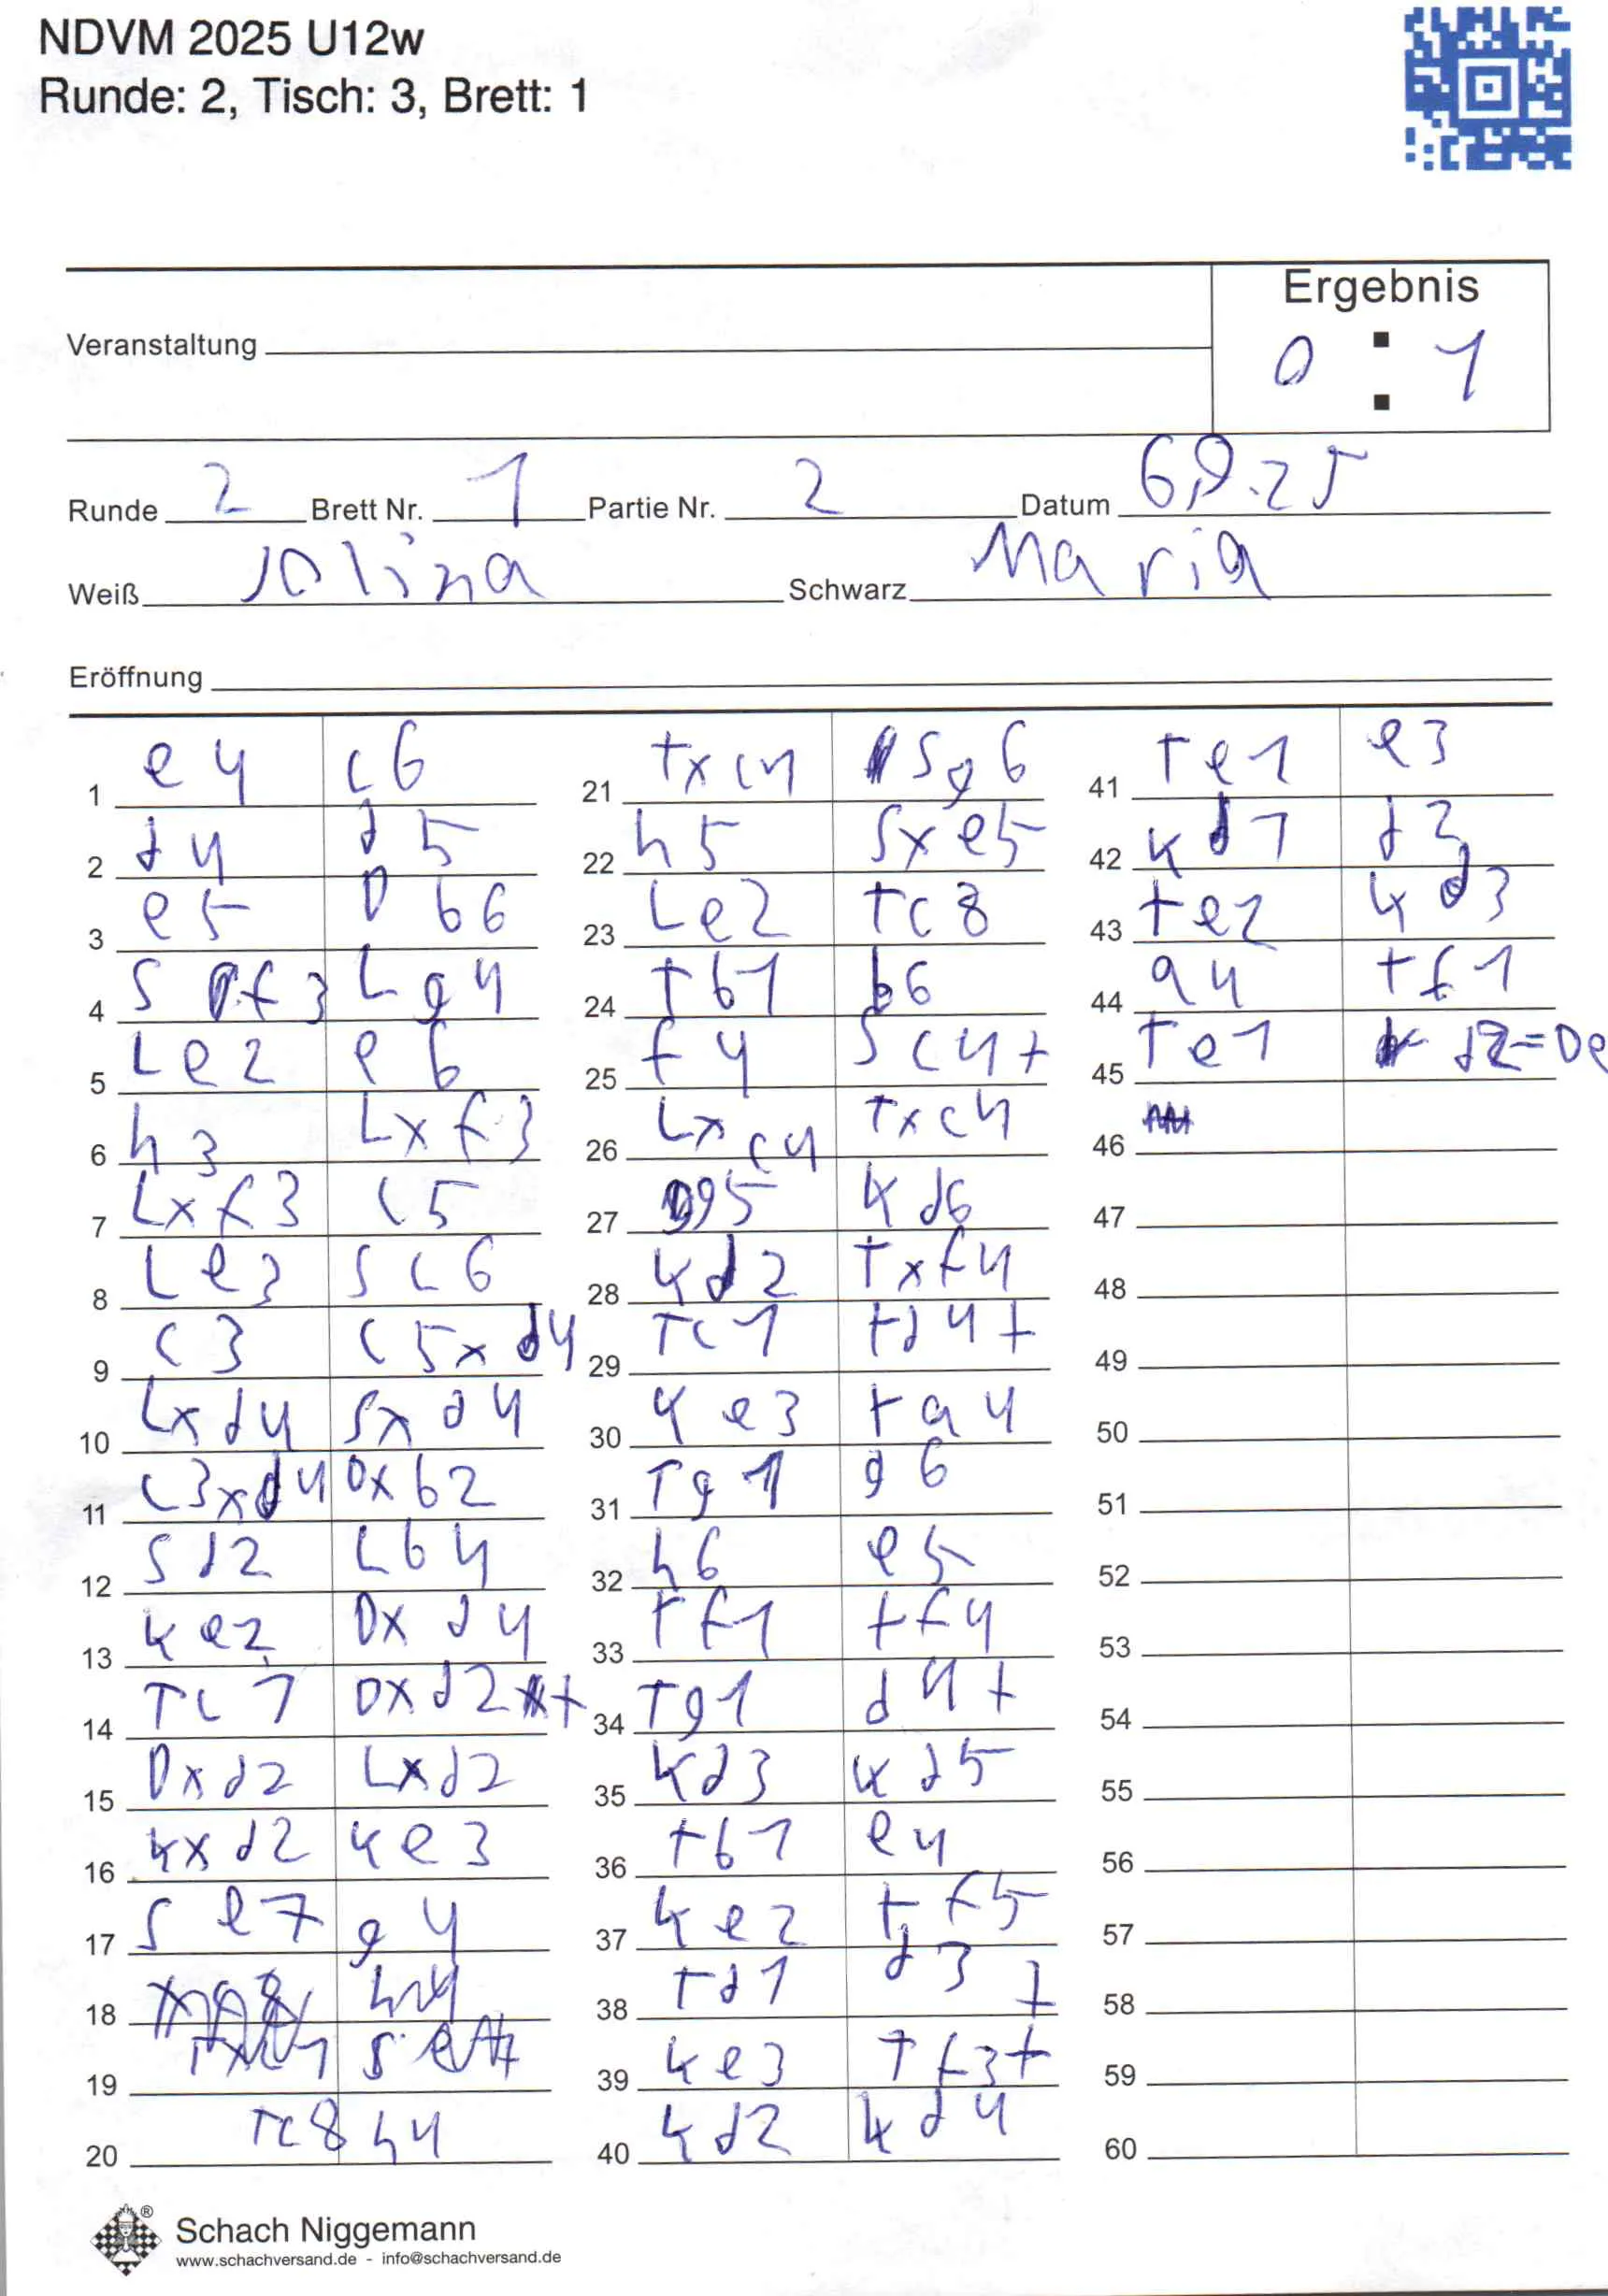 NDVM 2025 U12w
Runde: 2, Tisch: 3, Brett: 1
Ergebnis
Veranstaltung
0 : 1
Runde 2 Brett Nr. 1 Partie Nr. 2 Datum 6.9.25
Weiß Jolina Schwarz Maria
Eröffnung
1 e4 c6
2 d4 d5
3 e5 Db6
4 Sf3 Lg4
5 Le2 e6
6 h3 Lxf3
7 Lxf3 c5
8 Le3 Sc6
9 c3 c5xd4
10 Lxd4 Sxd4
11 c3xd4 Dxb2
12 Sd2 Lb4
13 Ke2 Dxd4
14 Tc1 Dxd2+
15 Dxd2 Lxd2
16 Kxd2 Ke3
17 Se7 g4
18
19
20 Tc8 h4
21 Txc4 Sg6
22 h5 Sxe5
23 Le2 Tc8
24 Tb1 b6
25 f4 Sc4+
26 Lxc4 Txc4
27 g5 Kd6
28 Kd2 Txf4
29 Tc1 Td4+
30 Ke3 Ta4
31 Tg1 g6
32 h6 e5
33 Tf1 Tf4
34 Tg1 d4+
35 Kd3 Kd5
36 Tb1 e4
37 Ke2 Tf5
38 Td1 d3+
39 Ke3 Tf3+
40 Kd2 Kd4
41 Te1 e3
42 Kd1 d2
43 Te2 Kd3
44 a4 Tf1
45 Te1 d2=De
46
47
48
49
50
51
52
53
54
55
56
57
58
59
60
Schach Niggemann
www.schachversand.de - info@schachversand.de